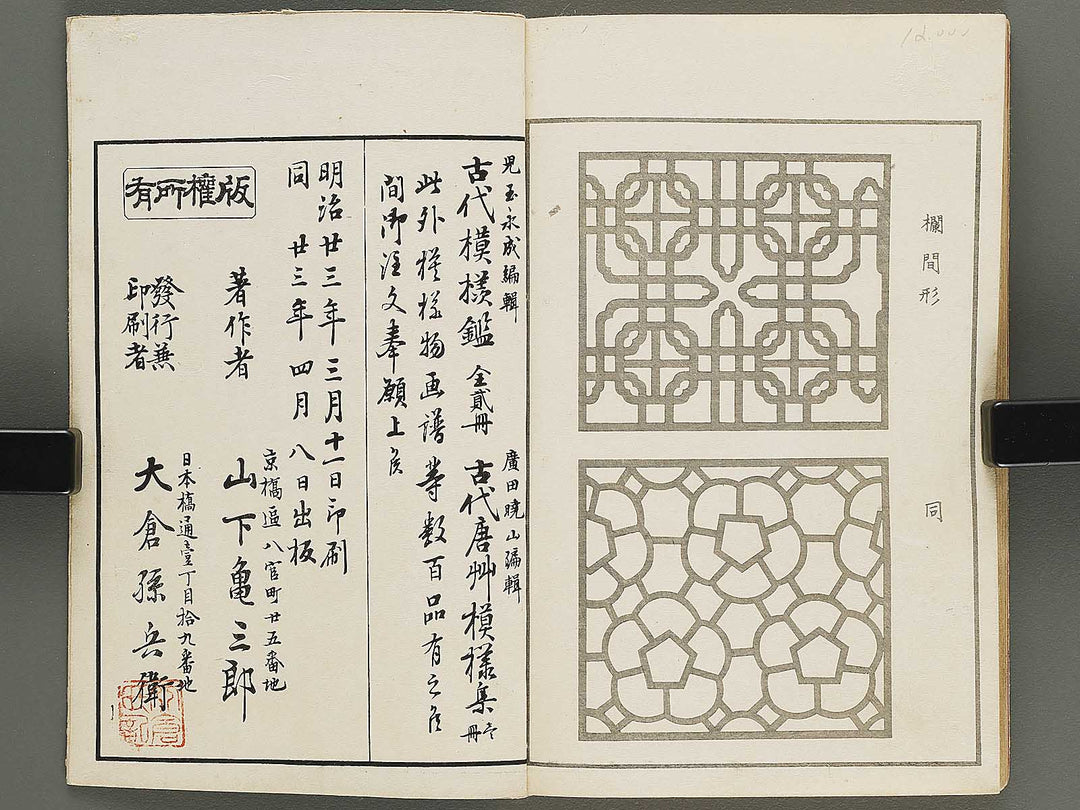 欄間形
同
児玉永成編輯
古代模様鑑 全貳冊
廣田曉山編輯
古代唐艸模様集 壱冊
此外模様物画譜等数百品有之候
間御注文奉願上候
明治廿三年三月十一日印刷
同 廿三年四月八日出板
版權所有
京橋區八官町廿五番地
著作者 山下亀三郎
日本橋通壹丁目拾九番地
發行兼
印刷者
大倉孫兵衛